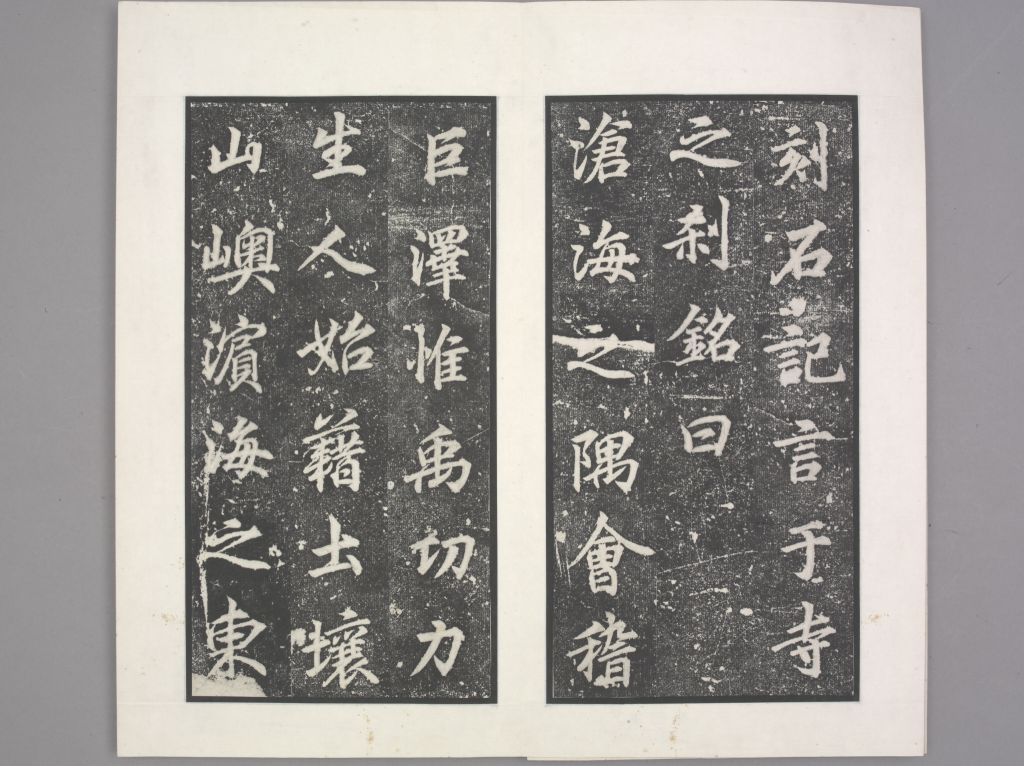 刻石記言于寺
之刹銘曰
滄海之隅會稽
巨澤惟禹切力
生人始藉土壤
山嶼濵海之東